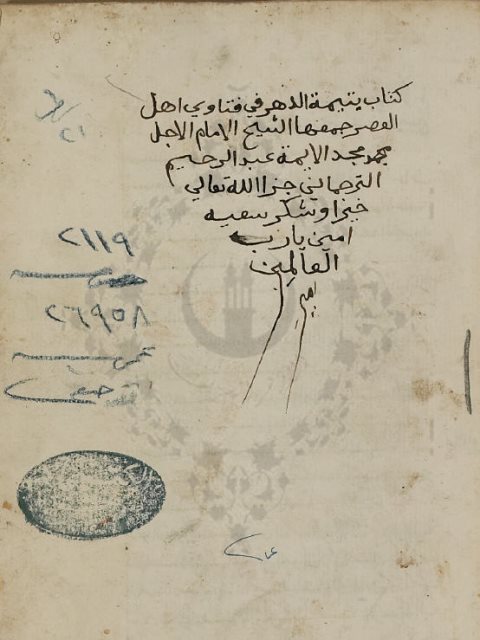 كتاب يتيمة الدهر في فتاوي اهل
العصر جمعها الشيخ الامام الاجل
محمد مجد الايمة عبد الرحيم
الترجماني جزا الله تعالي
خيرا وشكر سعيه
امين يارب
العالمين
امين
٢١
٢١١٩
٢٦٩٥٨
حنفي